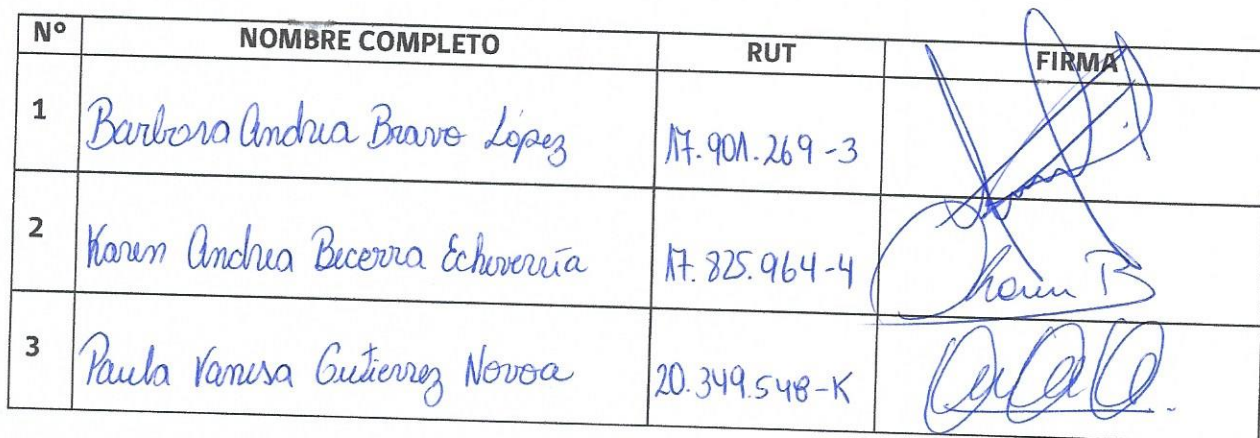 Nº NOMBRE COMPLETO RUT FIRMA
1 Barbara Andrea Bravo López 17.901.269-3
2 Karen Andrea Becerra Echeverría 17.825.964-4 Karen B
3 Paula Vanesa Gutierrez Novoa 20.349.548-K